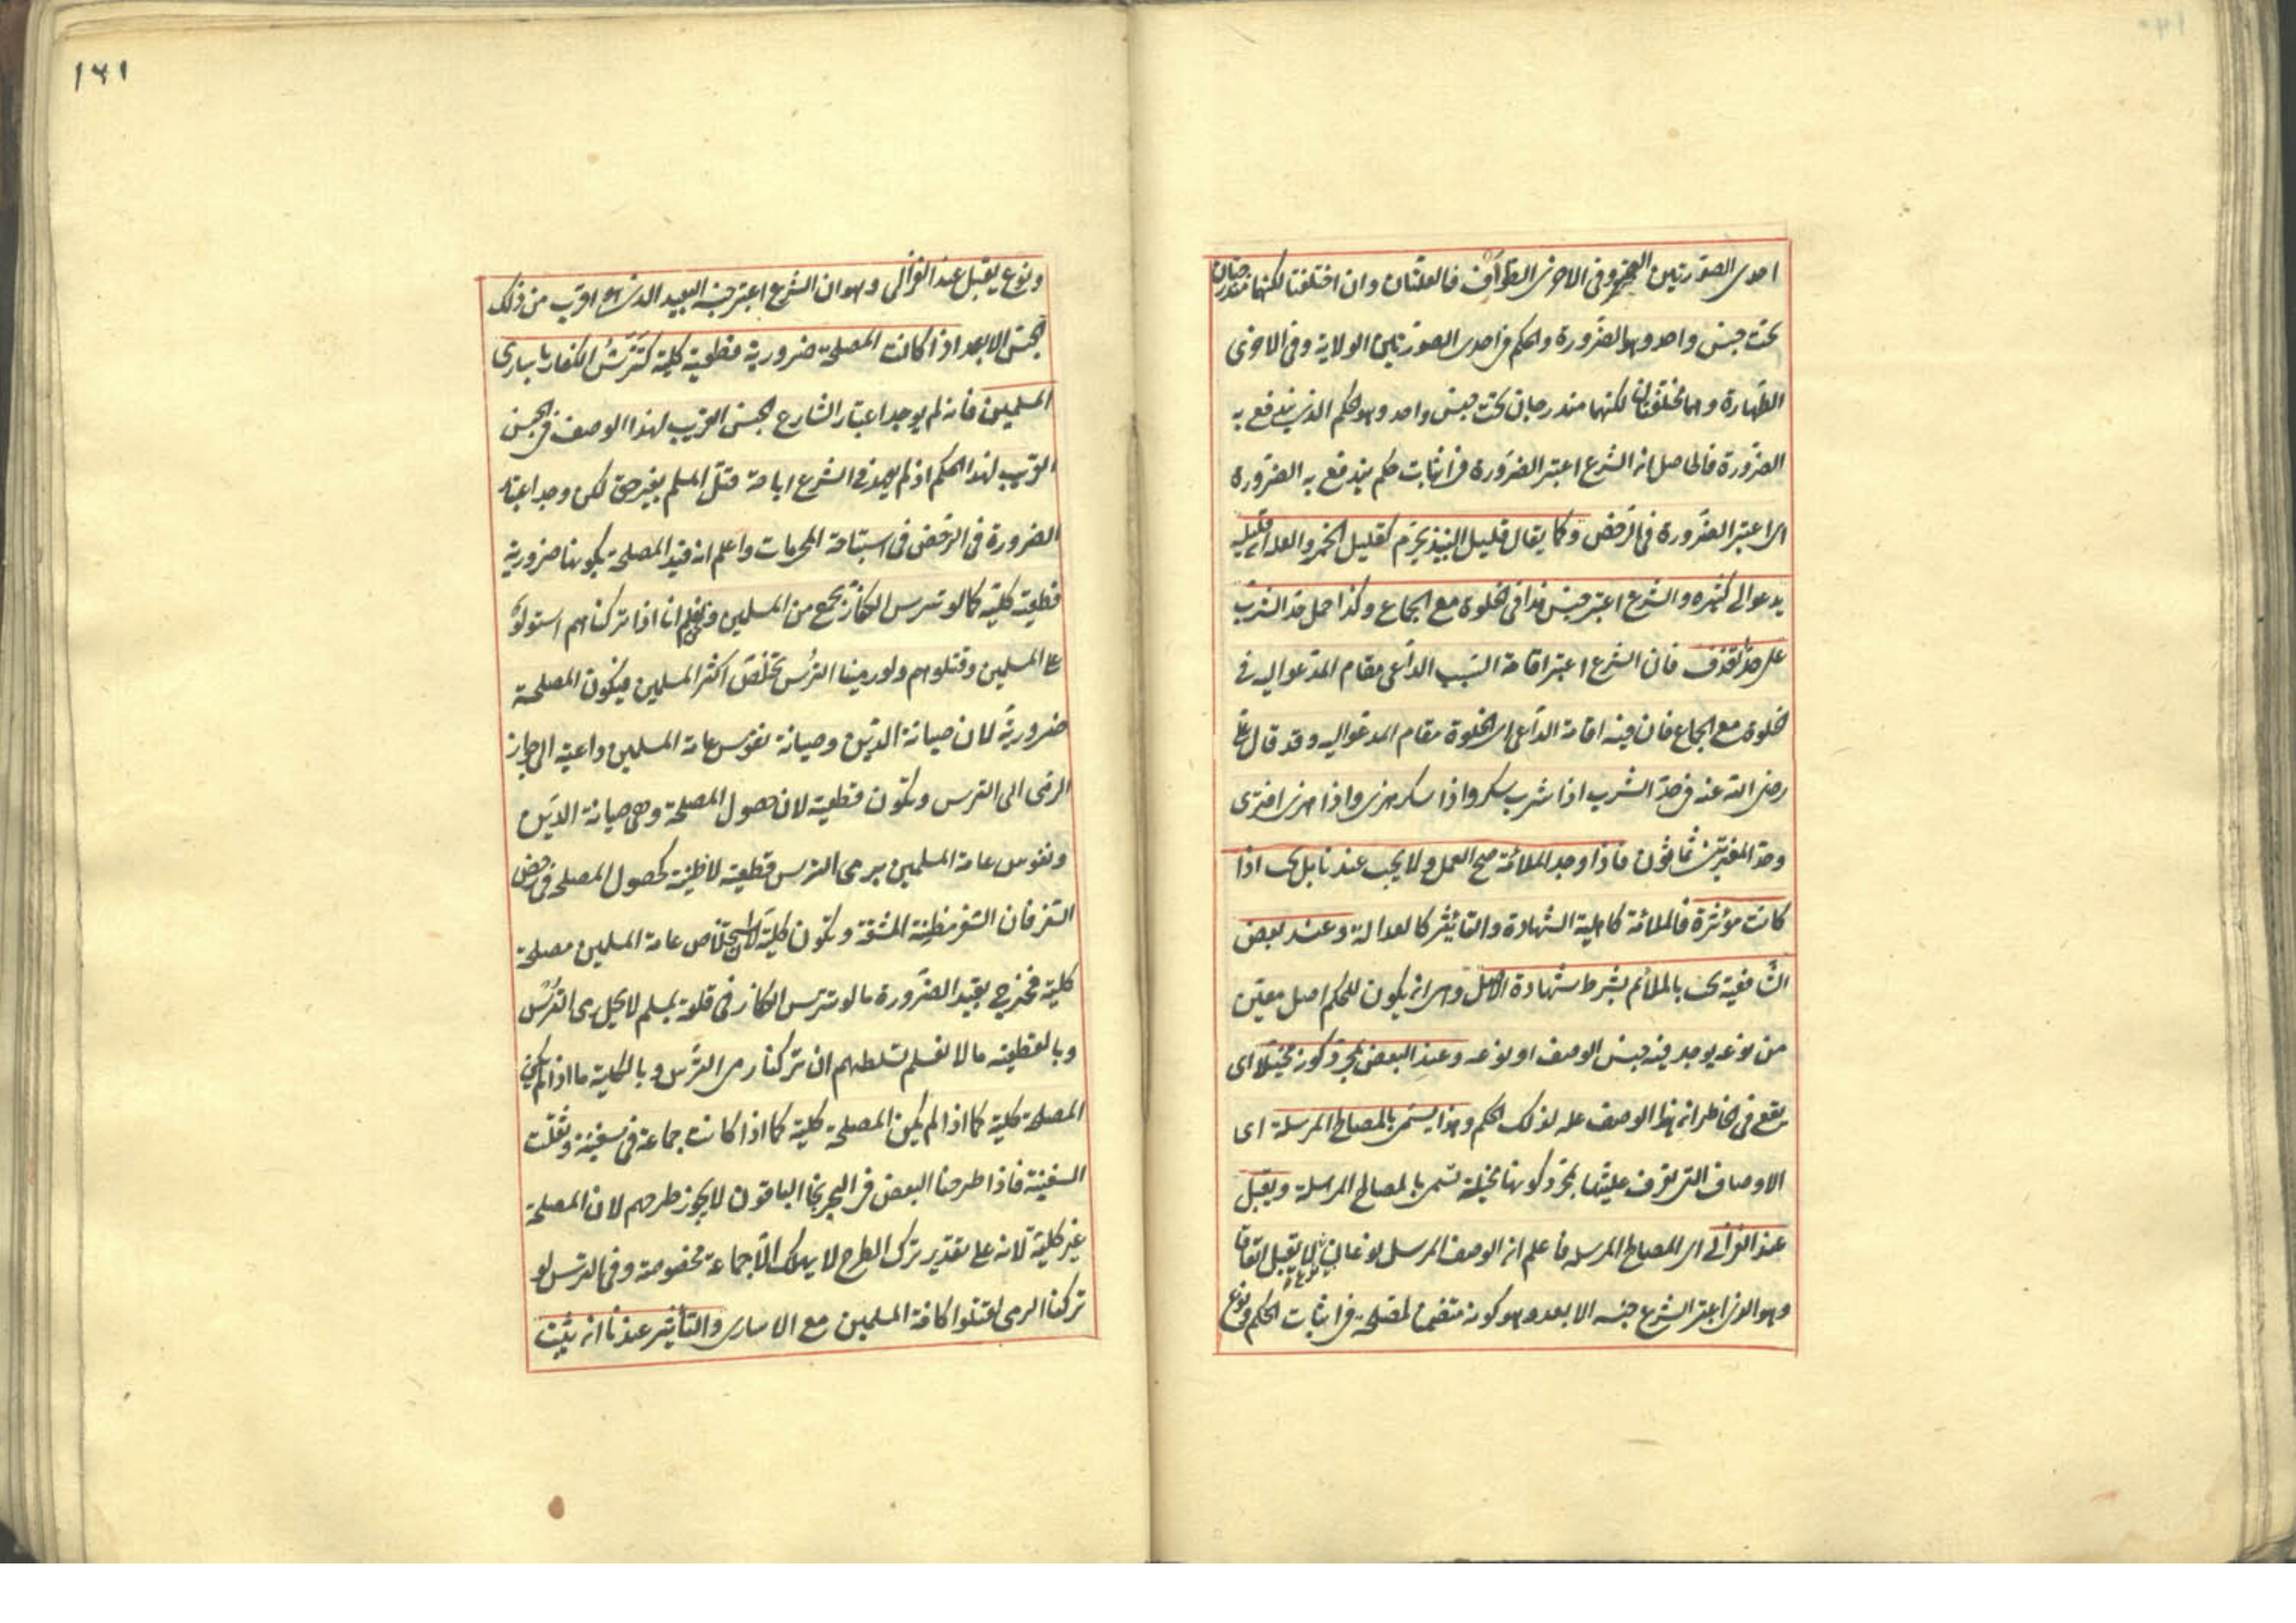 احدى الصورتين العجز وفي الاخرى الطواف فالعلتان وان اختلفتا لكنهما مندرجتان
تحت جنس واحد وهو الضرورة والحكم في احدى الصورتين الولاية وفي الاخرى
الطهارة وهما مختلفتان لكنهما مندرجان تحت جنس واحد وهو الحكم الذي يندفع به
الضرورة فالحاصل ان الشرع اعتبر الضرورة في اثبات حكم يندفع به الضرورة
اى اعتبر الضرورة في الرخص وكما يقال قليل النبيذ يحرم كقليل الخمر والعلة ان قليله
يدعو الى كثيره والشرع اعتبر جنس هذا في الخلوة مع الجماع وكذا حمل حد الشرب
على حد القذف فان الشرع اعتبر اقامة السبب الداعى مقام المدعو اليه في
الخلوة مع الجماع فان فيه اقامة الداعى اى الخلوة مقام المدعو اليه وقد قال على
رضى الله عنه في حد الشرب اذا شرب سكر واذا سكر هذى واذا هذى افترى
وحد المفترين ثمانون فاذا وجد الملائمة صح العمل ولا يجب عندنا بل يجب اذا
كانت مؤثرة فالملائمة كاهلية الشهادة والتأثير كالعدالة وعند بعض
الشافعية يجب بالملائم بشرط شهادة الاصل وهى ان يكون للحكم اصل معين
من نوعه يوجد فيه جنس الوصف او نوعه وعند البعض بمجرد كونه مخيلا اى
يقع في الخاطر ان هذا الوصف علة لذلك الحكم وهذا يسمى بالمصالح المرسلة اى
الاوصاف التى تعرف عليتها بمجرد كونها مخيلة تسمى بالمصالح المرسلة ويقبل
عند الغزالى اى المصالح المرسلة فاعلم ان الوصف المرسل نوعان نوع لا يقبل اتفاقا
وهو الذى اعتبر الشرع جنسه الابعد وهو كونه متضمنا لمصلحة في اثبات الحكم ونوع
١٦١
ونوع يقبل عند الغزالى وهو ان الشرع اعتبر جنسه البعيد الذى هو اقرب من ذلك
الجنس الابعد اذا كانت المصلحة ضرورية قطعية كلية كتترس الكفار باسارى
المسلمين فانه لم يوجد اعتبار الشارع الجنس القريب لهذا الوصف في الجنس
القريب لهذا الحكم اذ لم يعهد في الشرع اباحة قتل المسلم بغير حق لكن وجد اعتبار
الضرورة في الرخص في استباحة المحرمات واعلم انه قيد المصلحة بكونها ضرورية
قطعية كلية كما لو تترس الكفار بجمع من المسلمين ونعلم انا اذا تركناهم استولوا
على المسلمين وقتلوهم ولو رمينا الترس تخلص اكثر المسلمين فيكون المصلحة
ضرورية لان صيانة الدين وصيانة نفوس عامة المسلمين داعية الى جواز
الرمى الى الترس وتكون قطعية لان حصول المصلحة وهى صيانة الدين
ونفوس عامة المسلمين برمى الترس قطعية لا ظنية كحصول المصلحة في رخص
السفر فان السفر مظنة المشقة وتكون كلية لان استخلاص عامة المسلمين مصلحة
كلية فخرج بقيد الضرورة ما لو تترس الكافر في قلعة بمسلم لا يحل رمى الترس
وبالقطعية ما لا نعلم تسلطهم ان تركنا رمى الترس وبالكلية ما اذا لم يكن
المصلحة كلية كما اذا لم يكن المصلحة كلية كما اذا كانت جماعة في سفينة وثقلت
السفينة فاذا طرحنا البعض في البحر نجا الباقون لا يجوز طرحهم لان المصلحة
غير كلية لانه على تقدير ترك الطرح لا يهلك الا جماعة مخصوصة وفي الترس لو
تركنا الرمى لقتلوا كافة المسلمين مع الاسارى والتأثير عندنا ان يثبت